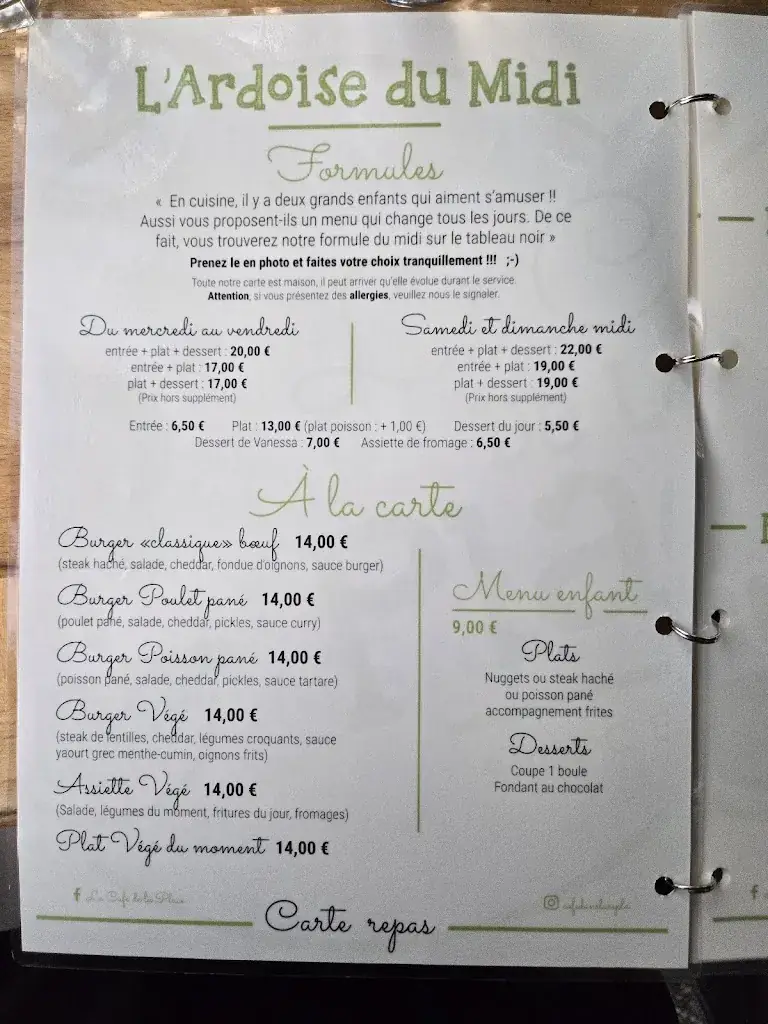 L'Ardoise du Midi
Formules
« En cuisine, il y a deux grands enfants qui aiment s'amuser !!
Aussi vous proposent-ils un menu qui change tous les jours. De ce
fait, vous trouverez notre formule du midi sur le tableau noir »
Prenez le en photo et faites votre choix tranquillement !!! ;-)
Toute notre carte est maison, il peut arriver qu'elle évolue durant le service.
Attention, si vous présentez des allergies, veuillez nous le signaler.
Du mercredi au vendredi
entrée + plat + dessert : 20,00 €
entrée + plat : 17,00 €
plat + dessert : 17,00 €
(Prix hors supplément)
Samedi et dimanche midi
entrée + plat + dessert : 22,00 €
entrée + plat : 19,00 €
plat + dessert : 19,00 €
(Prix hors supplément)
Entrée : 6,50 € Plat : 13,00 € (plat poisson : + 1,00 €) Dessert du jour : 5,50 €
Dessert de Vanessa : 7,00 € Assiette de fromage : 6,50 €
À la carte
Burger «classique» bœuf 14,00 €
(steak haché, salade, cheddar, fondue d'oignons, sauce burger)
Burger Poulet pané 14,00 €
(poulet pané, salade, cheddar, pickles, sauce curry)
Burger Poisson pané 14,00 €
(poisson pané, salade, cheddar, pickles, sauce tartare)
Burger Végé 14,00 €
(steak de lentilles, cheddar, légumes croquants, sauce
yaourt grec menthe-cumin, oignons frits)
Assiette Végé 14,00 €
(Salade, légumes du moment, fritures du jour, fromages)
Plat Végé du moment 14,00 €
Menu enfant
9,00 €
Plats
Nuggets ou steak haché
ou poisson pané
accompagnement frites
Desserts
Coupe 1 boule
Fondant au chocolat
Le Café de la Place
Carte repas